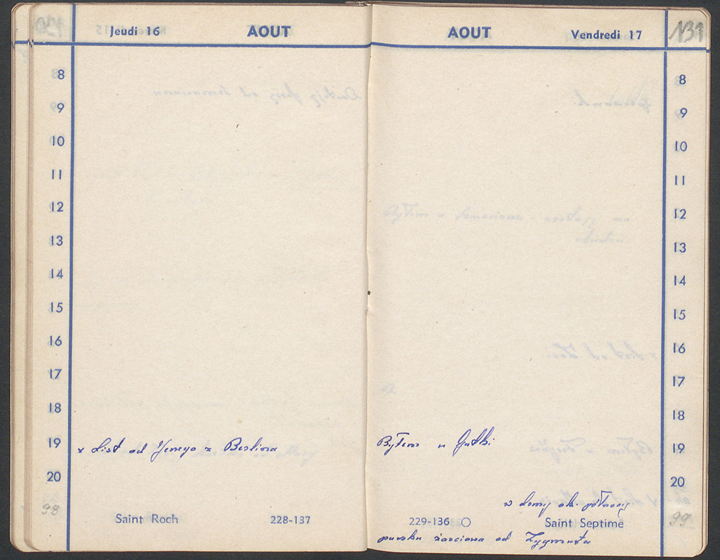 Jeudi 16
AOUT
8
9
10
11
12
13
14
15
16
17
18
19
x List od Jerzego z Berlina
20
98
Saint Roch
228-137
AOUT
Vendredi 17
131
8
9
10
11
12
13
14
15
16
17
18
Byłem u Gutki
19
20
w domu ok. północy
229-136
Saint Septime
99
paczka żarciowa od Zygmunta